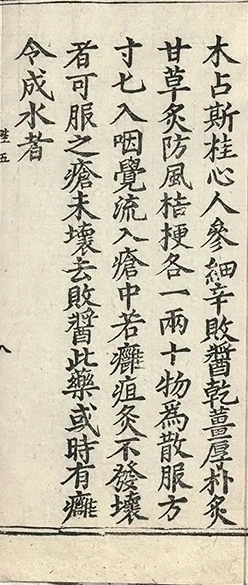 木占斯桂心人參細辛敗醬乾薑厚朴炙
甘草炙防風桔梗各一兩十物爲散服方
寸匕入咽覺流入瘡中若癰疽灸不發壞
者可服之瘡未壞去敗醬此藥或時有癰
令成水者